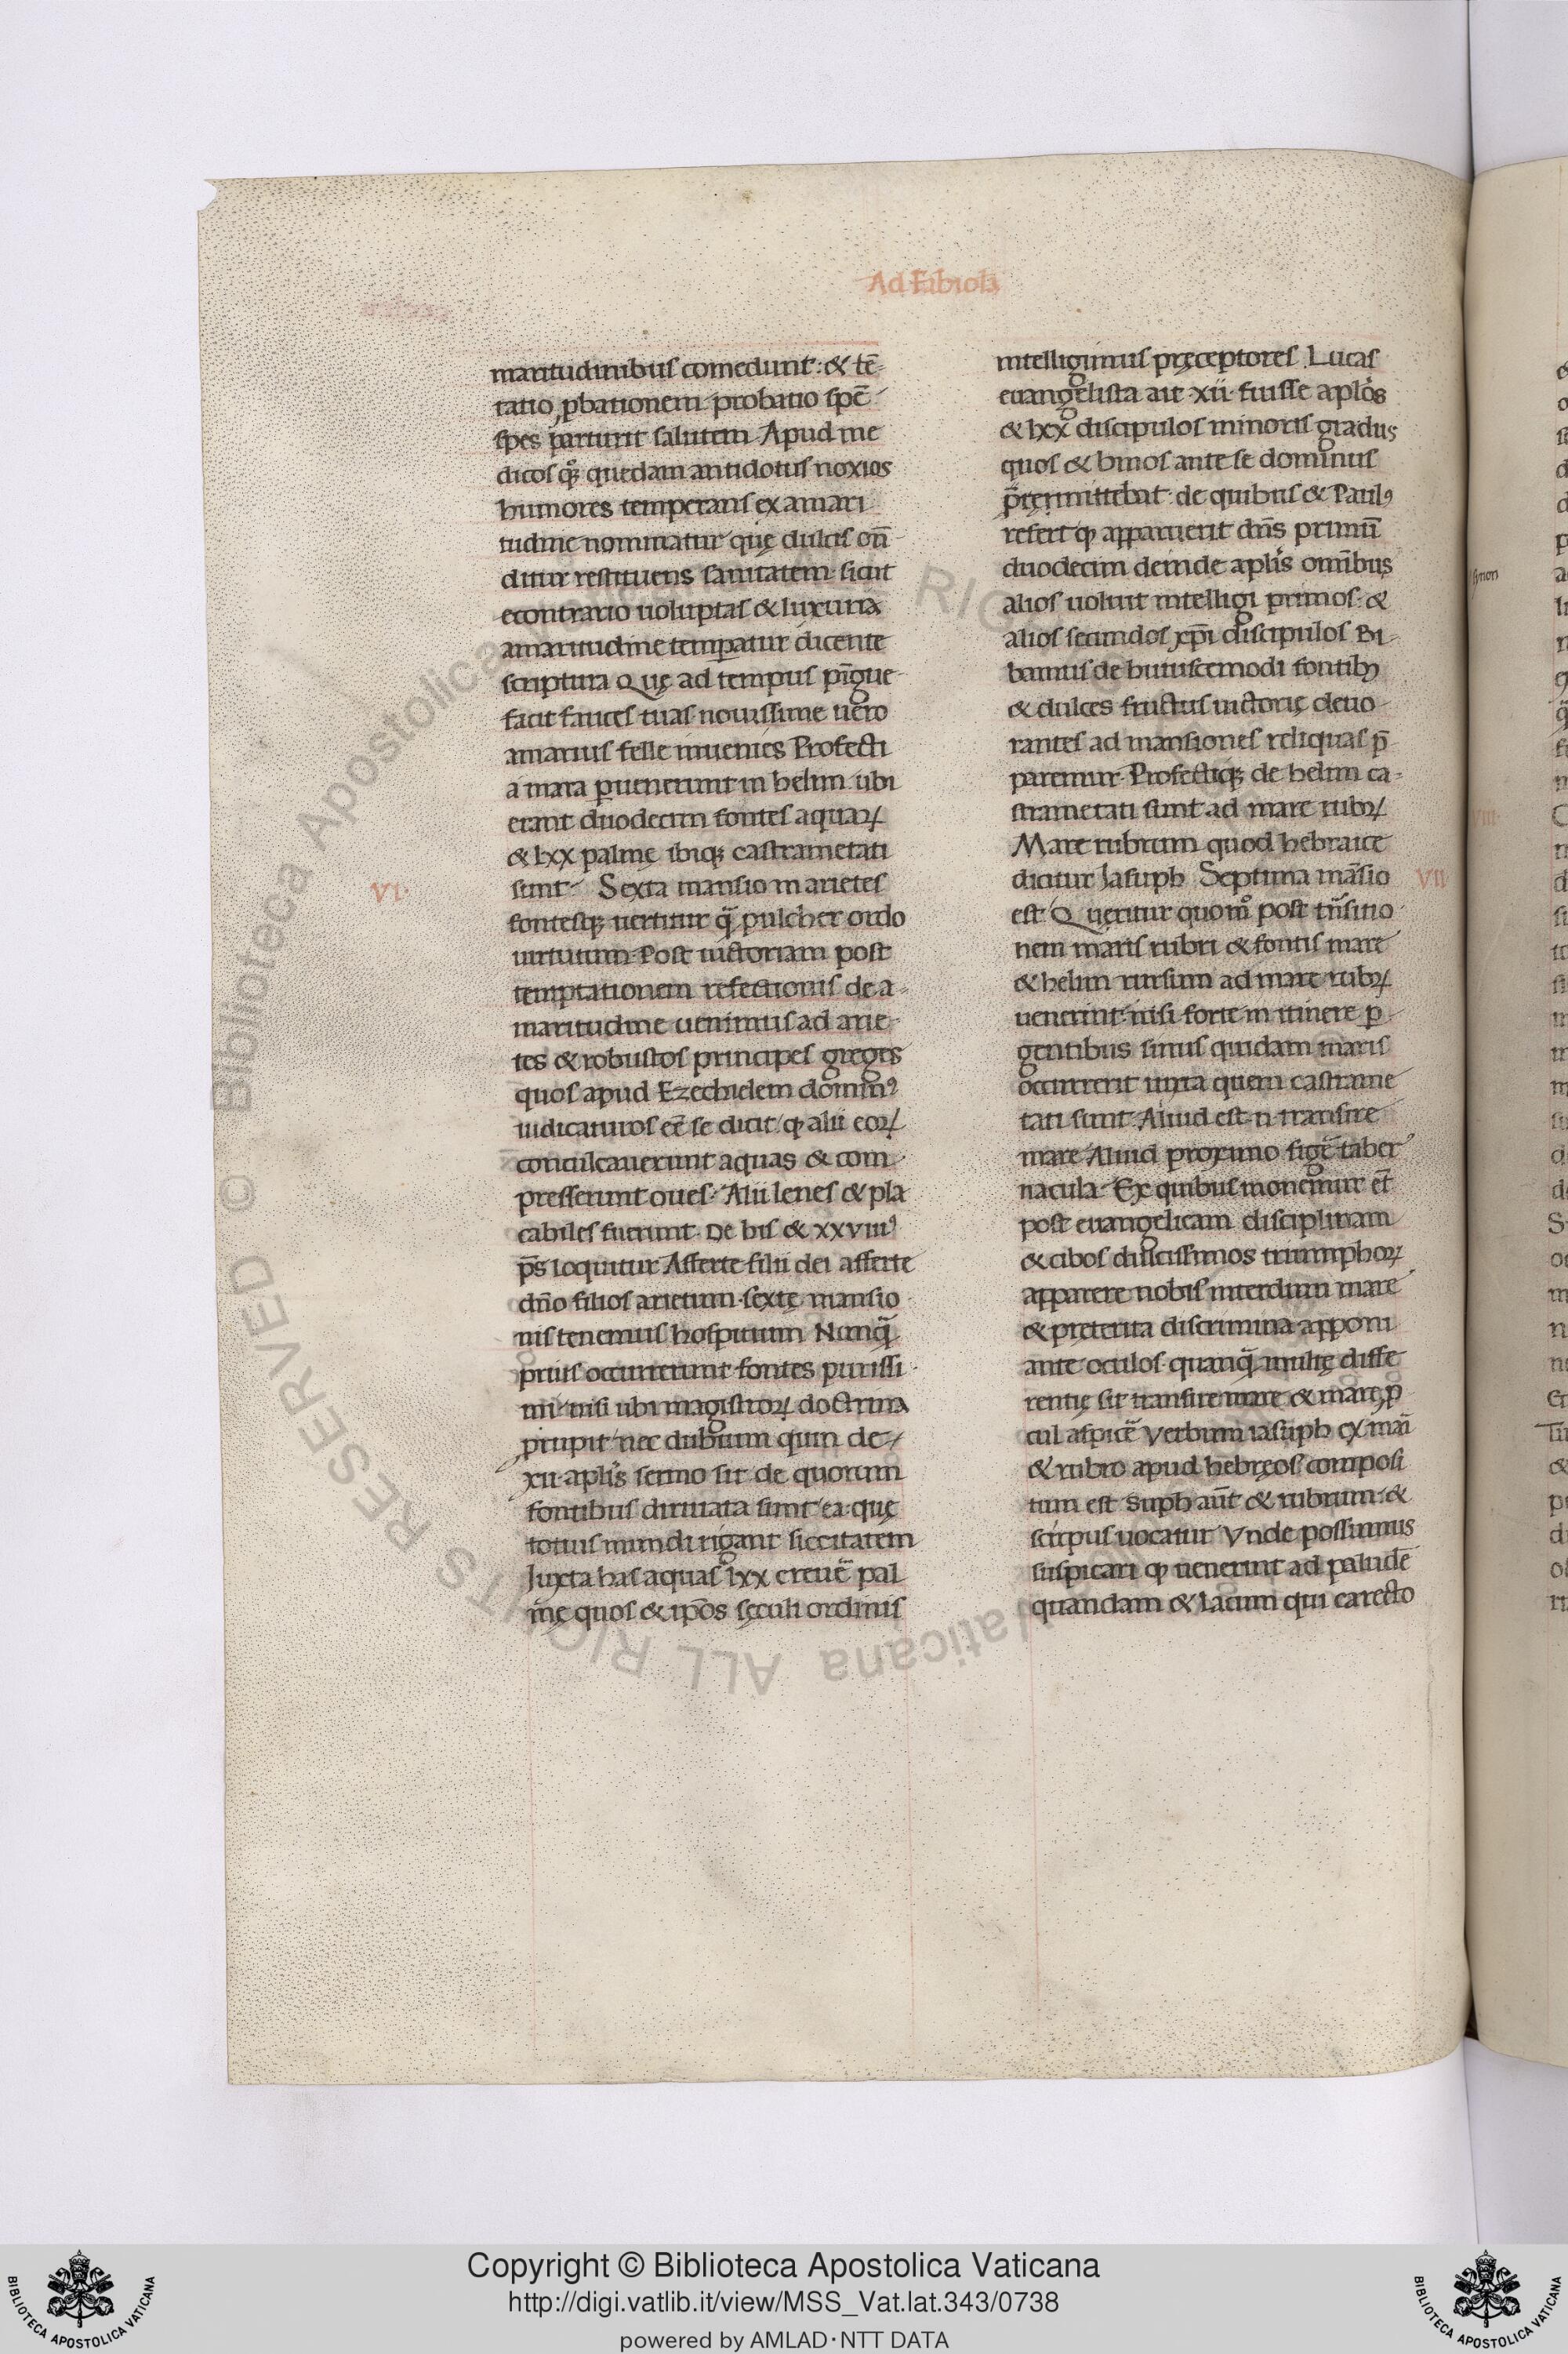 Ad Fabiolā
maritudinibus comedunt: & tē-
tatio ꝓbationem probatio spē
spes parturit salutem Apud me
dicos qꝫ quedam antidotus noxios
humores temperans ex amari
tudine nominatur quę dulcis on̄
ditur restituens sanitatem sicut
econtrario uoluptas & luxuria
amaritudine temꝑatur dicente
scriptura Quę ad tempus pīgue
facit fauces tuas nouissime uero
amarius felle inuenies Profecti
a mara ꝑuenerunt in helim ubi
erant duodecim fontes aquaꝝ
& lxx palmę ibiqꝫ castrametati
VI·
sunt Sexta mansio in arietes
fontesqꝫ uertitur qᷓ pulcher ordo
uirtutum Post uictoriam post
temptationem refectionis de a-
maritudine uenimus ad arie-
tes & robustos principes greges
quos apud Ezechielem dominꝰ
iudicaturos eē se dicit ꝙ alii eoꝝ
conculcauerunt aquas & com
presserunt oues Alii lenes & pla
cabiles fuerunt De his & xxviiiꝰ
p̄s loquitur Afferte filii dei afferte
dn̄o filios arietum sextę mansio
nis tenemus hospitium Nunqᷓ
prius occurrerunt fontes purissi
mi nisi ubi magistroꝝ doctrina
ꝓrupit nec dubium quin de
xii apl̄is sermo sit de quorum
fontibus diriuata sunt ea quę
totius mundi rigant siccitatem
Juxta has aquas lxx creuē pal
mę quos & ip̄os sęculi ordinis
intelligimus pręceptores Lucas
euangelista ait xii fuisse apl̄os
& lxx discipulos minoris gradus
quos & binos ante se dominus
refert ꝙ apparuerit dn̄s primū
duodecim deinde apl̄is omībus
alios uoluit intelligi primos &
alios secundos xp̄i discipulos Bi-
bamus de huiuscemodi fontibꝫ
& dulces fructus uictorię deuo
rantes ad mansiones reliquas p̄
paremur Profectiqꝫ de helim ca-
strametati sunt ad mare rubꝝ
Mare rubrum quod hebraice
dicitur Jasuph Septima māsio
VII
est Quęritur quom̊ post trn̄sitio
nem maris rubri & fontis mare
& helim rursum ad mare rubꝝ
uenerint nisi forte in itinere ꝑ
gentibus sinus quidam maris
occurrerit iuxta quem castrame
tati sunt Aliud est n transire
mare Aliud proximo figē taber
nacula Ex quibus monemur et̄
post euangelicam disciplinam
& cibos dulcissimos triumphoꝝ
apparere nobis interdum mare
& pręterita discrimina apponi
ante oculos quanqᷓ multę diffe
rentię sit transire mare & mare ꝓ
cul aspicē Verbum iasuph ex mari
& rubro apud hebręos composi
tum est Suph aūt & rubrum &
scirpus uocatur Vnde possumus
suspicari ꝙ uenerint ad paludē
quandam & lacum qui carecto
Copyright © Biblioteca Apostolica Vaticana
http://digi.vatlib.it/view/MSS_Vat.lat.343/0738
powered by AMLAD·NTT DATA